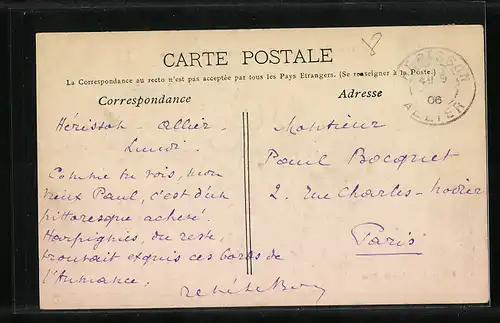 8
CARTE POSTALE
La Correspondance au recto n'est pas acceptée par tous les Pays Etrangers. (Se renseigner à la Poste.)
Correspondance
Adresse
HERISSON
06
ALLIER
Hérisson - Allier -
Lundi.
Comme tu vois, mon
vieux Paul, c'est d'un
pittoresque achevé.
Harpignies, du reste,
trouvait exquis ces bords de
l'Aumance.
Monsieur
Paul Bocquet
2. rue Charles-Nodier
Paris